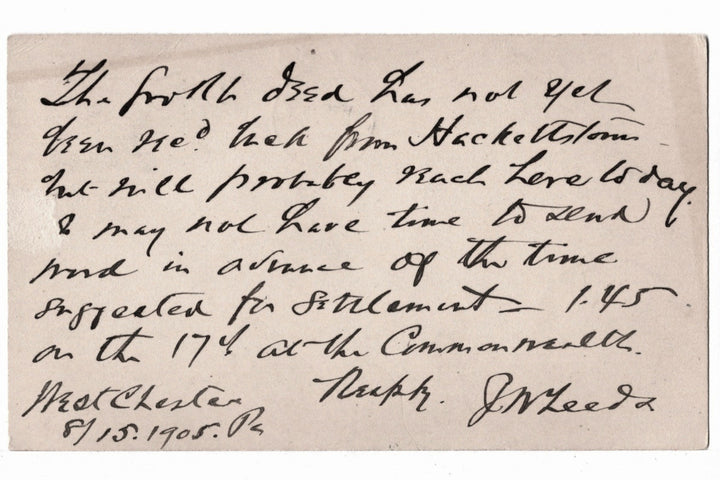 The fourth deed has not yet
been rec'd back from Hackettstown
but will probably reach here today.
I may not have time to send
word in advance of the time
suggested for settlement – 1.45
on the 17th at the Commonwealth.
West Chester Respy. J W Leeds
8/15.1905. Pa